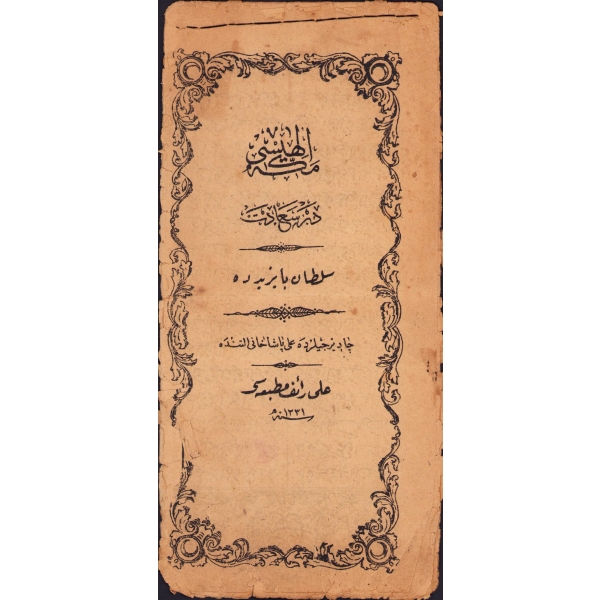 مكه الهيسى
در سعادت
سلطان بايزيدده
چاديرجيلرده على پاشا خانى التنده
على رائف مطبعه سى
سنه ١٣٣١